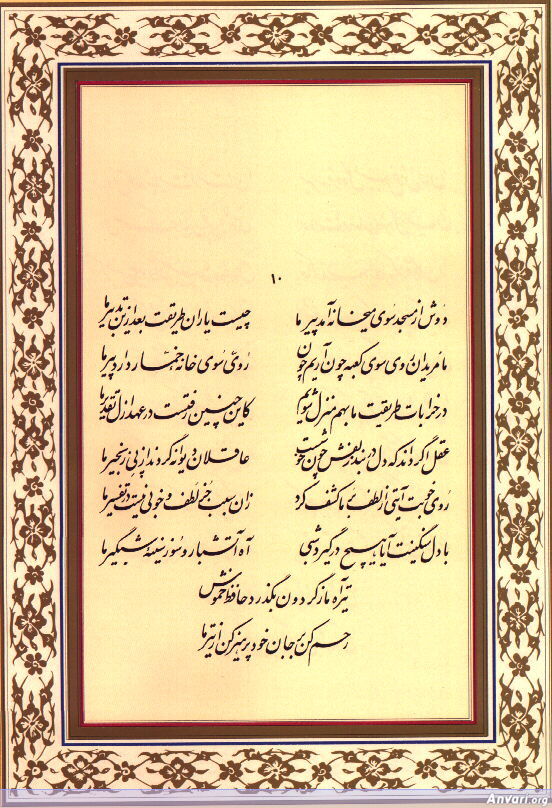 ۱۰
دوش از مسجد سوی میخانه آمد پیر ما چیست یاران طریقت بعد ازین تدبیر ما
ما مریدان روی سوی کعبه چون آریم چون روی سوی خانه خمار دارد پیر ما
در خرابات طریقت ما بهم منزل شویم کاین چنین رفتست در عهد ازل تقدیر ما
عقل اگر داند که دل در بند زلفش چون خوشست عاقلان دیوانه گردند از پی زنجیر ما
روی خوبت آیتی از لطف بر ما کشف کرد زان سبب جز لطف و خوبی نیست در تفسیر ما
با دل سنگینت آیا هیچ درگیرد شبی آه آتشبار و سوز سینه شبگیر ما
تیر آه ما ز گردون بگذرد حافظ خموش
رحم کن بر جان خود پرهیز کن از تیر ما
Anvari.org